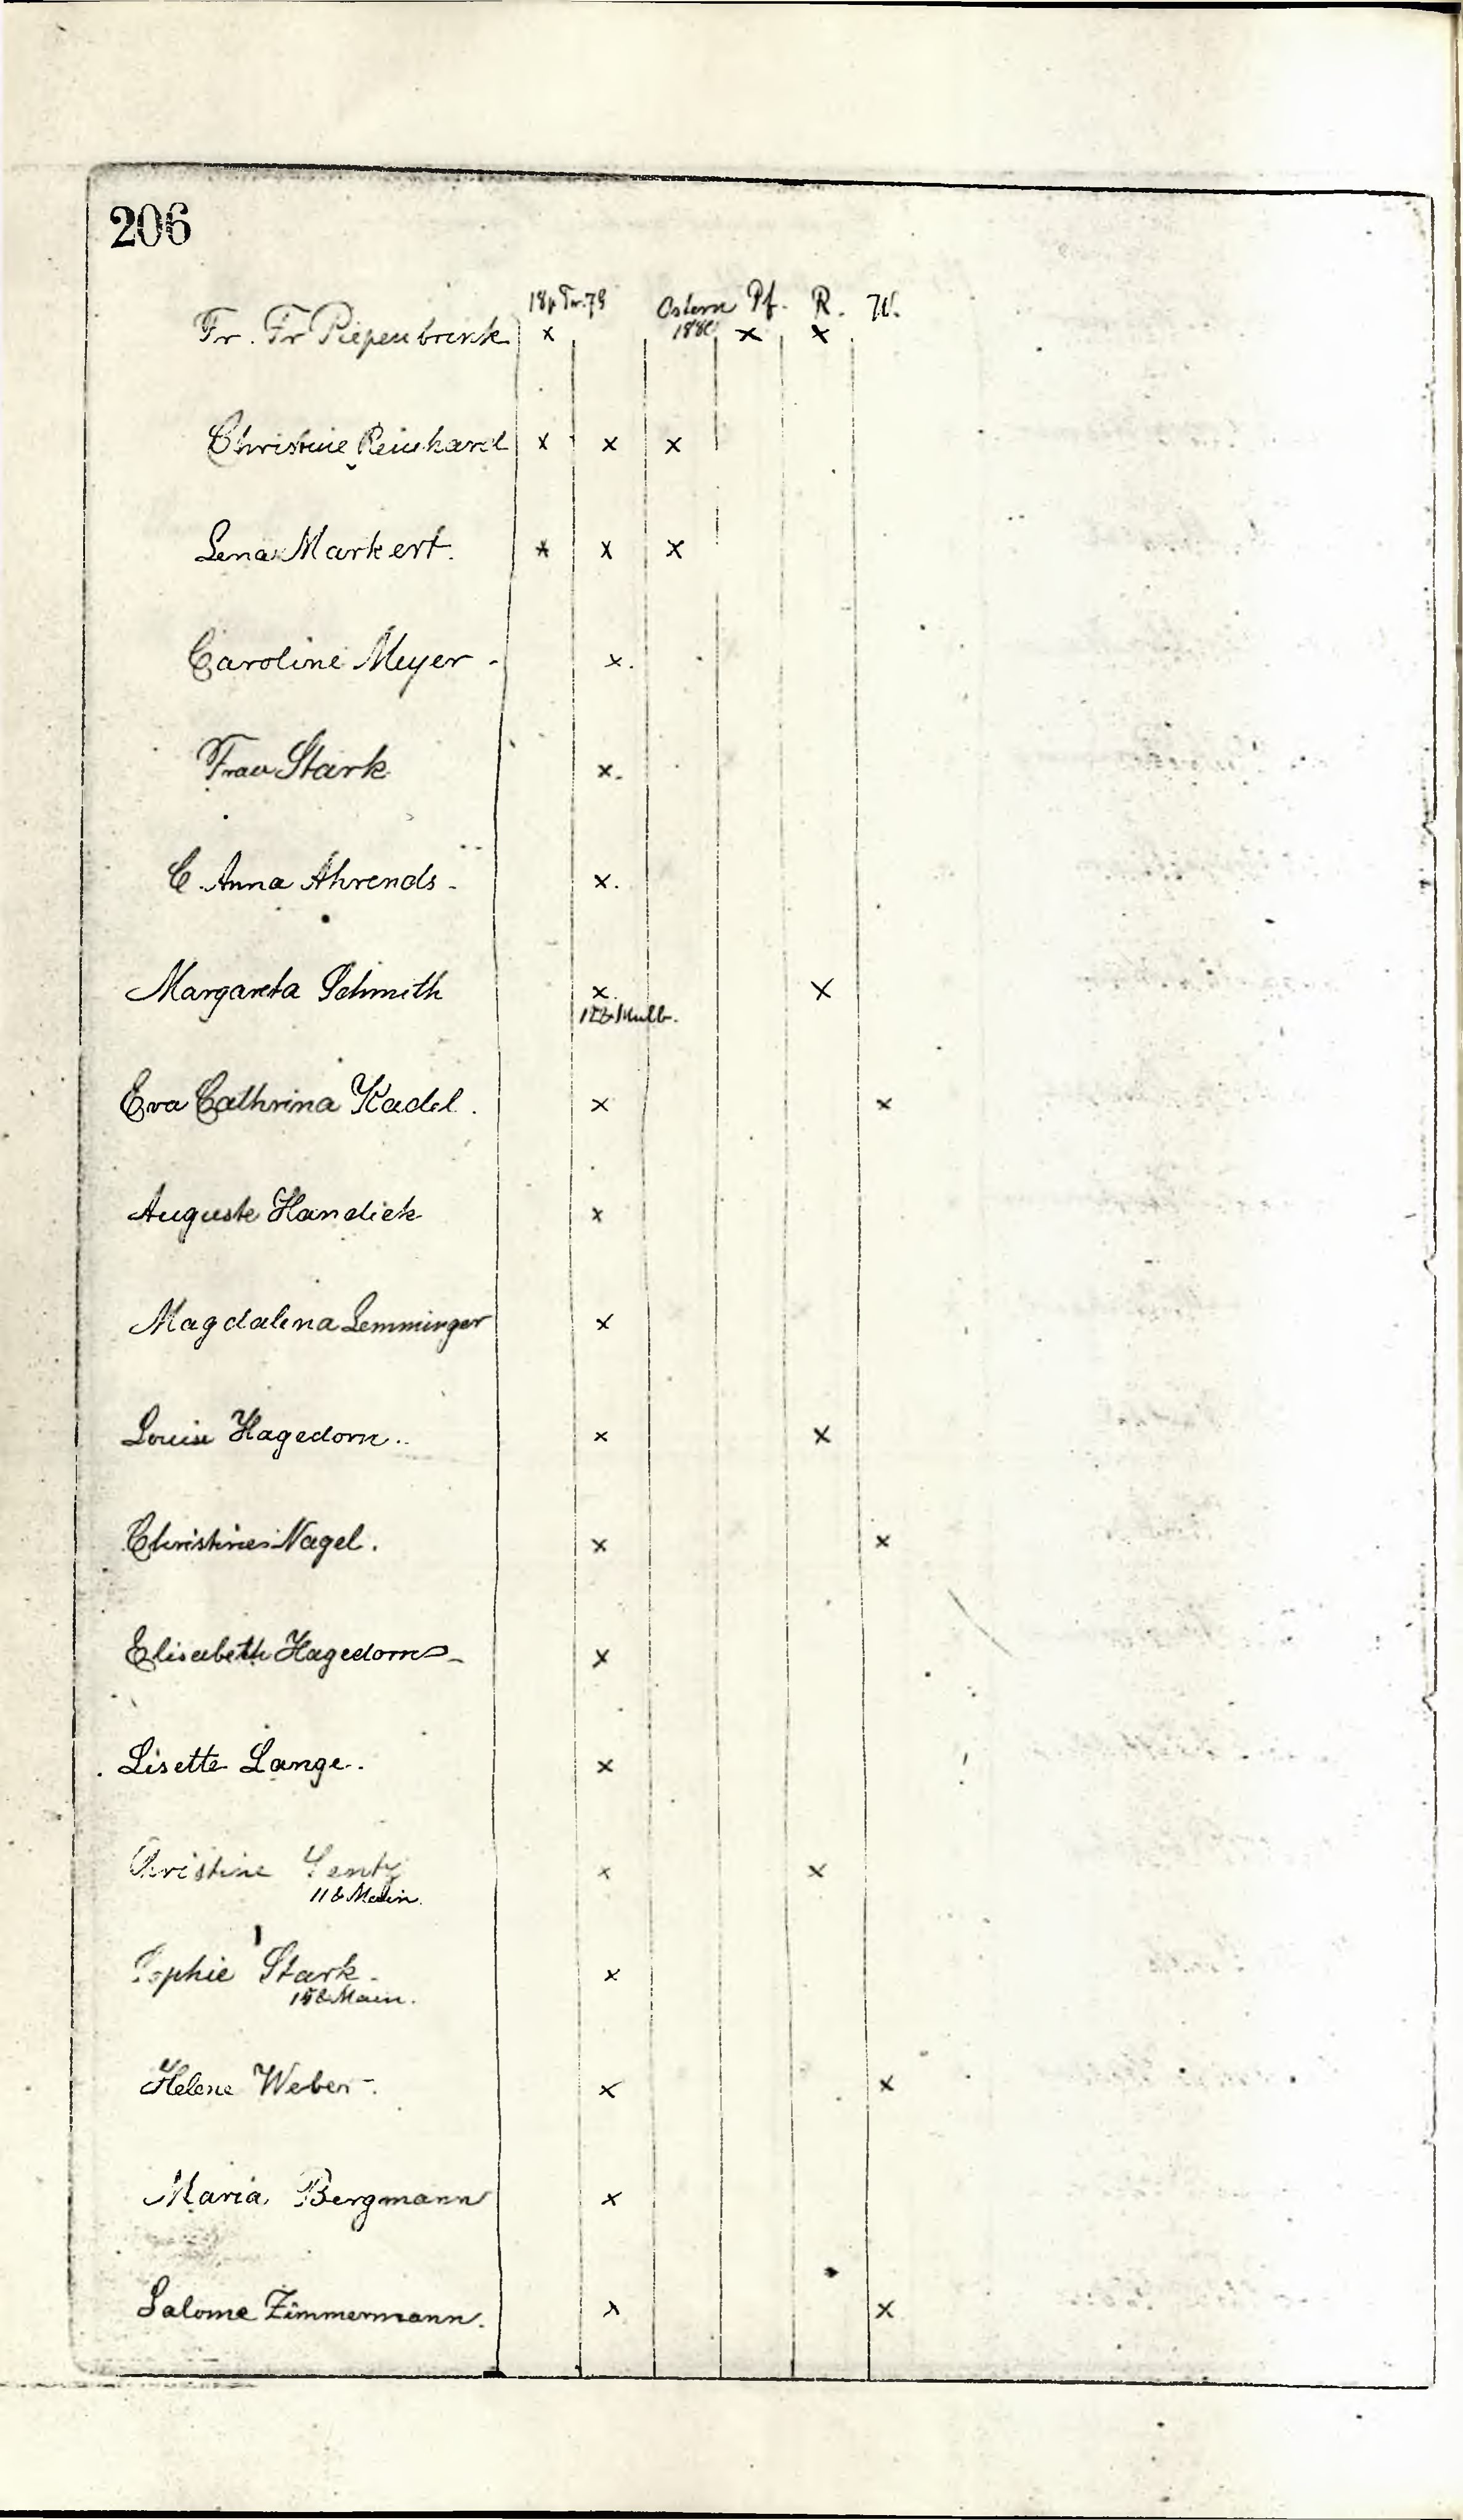 206
18 p Tr. 79 Ostern Pf. R. W.
Fr. Fr Piepenbrink x 1880 x x
Christine Reinhard x x x
Lena Markert. x x x
Caroline Meyer - x.
Frau Stark x.
C. Anna Ahrends - x.
Margareta Schmith x. x
12 & Mulb.
Eva Cathrina Kadel. x x
Auguste Handick x
Magdalena Lemminger x
Louise Hagedorn.. x x
Christine Nagel. x x
Elisabeth Hagedorn - x
Lisette Lange.. x
Christine x x
11 & Main.
Sophie Stark - x
15 & Main.
Helene Weber -. x x
Maria Bergmann x
Salome Zimmermann. x x